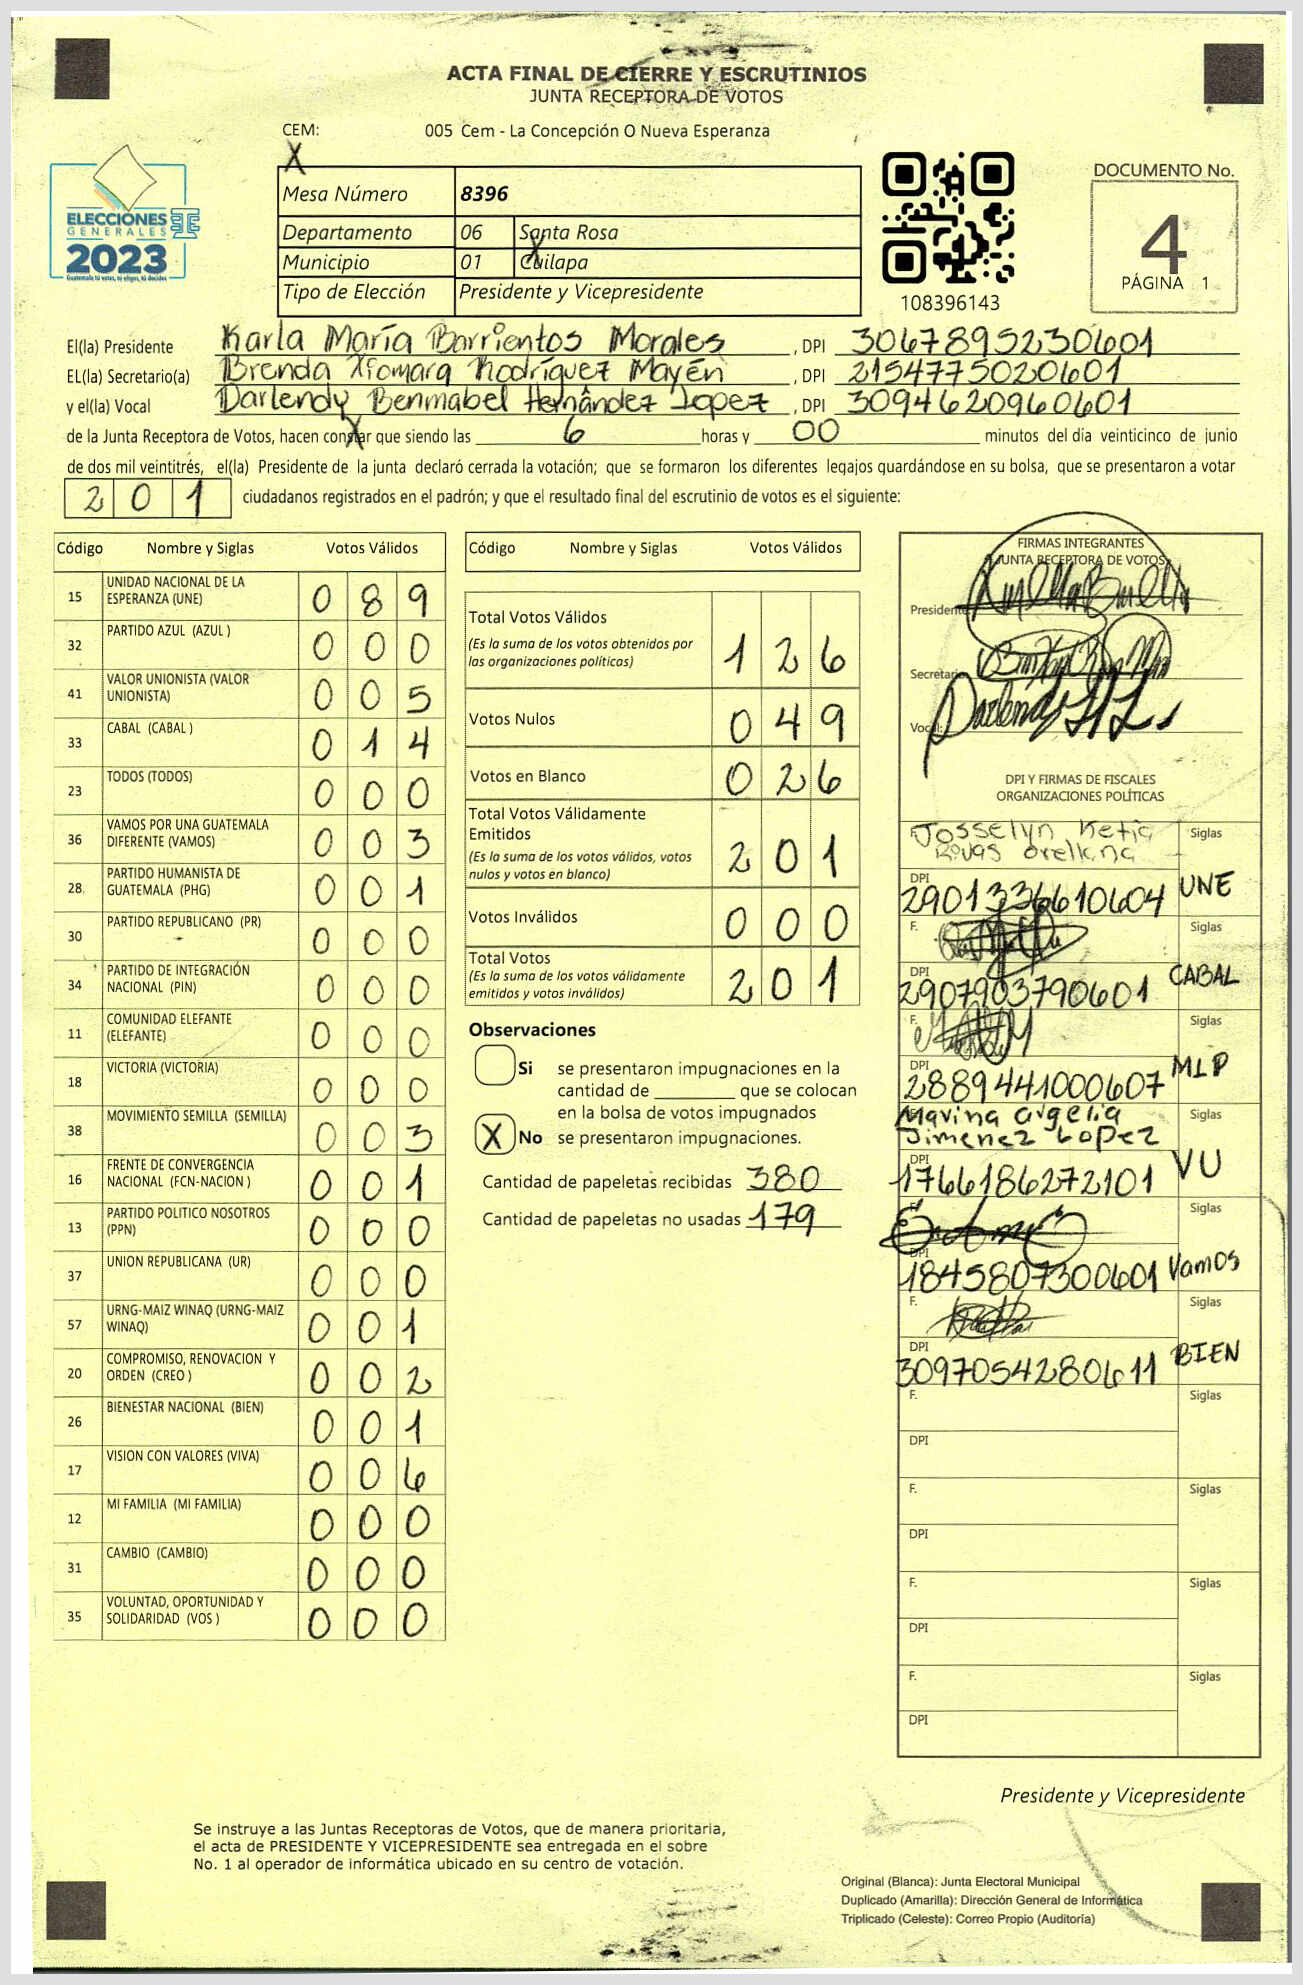 ACTA FINAL DE CIERRE Y ESCRUTINIOS
JUNTA RECEPTORA DE VOTOS
CEM: 005 Cem - La Concepción O Nueva Esperanza
X
ELECCIONES
GENERALES
2023
Guatemala tú votas, tú eliges, tú decides
Mesa Número 8396
Departamento 06 Santa Rosa
Municipio 01 Cuilapa
Tipo de Elección Presidente y Vicepresidente
108396143
DOCUMENTO No.
4
PÁGINA 1
El(la) Presidente Karla María Barrientos Morales , DPI 3067895230601
EL(la) Secretario(a) Brenda Xiomara Rodríguez Mayén , DPI 2154775020601
y el(la) Vocal Darlendy Benmabel Hernández Lopez , DPI 3094620960601
de la Junta Receptora de Votos, hacen constar que siendo las 6 horas y 00 minutos del día veinticinco de junio
de dos mil veintitrés, el(la) Presidente de la junta declaró cerrada la votación; que se formaron los diferentes legajos guardándose en su bolsa, que se presentaron a votar
201 ciudadanos registrados en el padrón; y que el resultado final del escrutinio de votos es el siguiente:
Código Nombre y Siglas Votos Válidos
15 UNIDAD NACIONAL DE LA ESPERANZA (UNE) 0 8 9
32 PARTIDO AZUL (AZUL ) 0 0 0
41 VALOR UNIONISTA (VALOR UNIONISTA) 0 0 5
33 CABAL (CABAL ) 0 1 4
23 TODOS (TODOS) 0 0 0
36 VAMOS POR UNA GUATEMALA DIFERENTE (VAMOS) 0 0 3
28 PARTIDO HUMANISTA DE GUATEMALA (PHG) 0 0 1
30 PARTIDO REPUBLICANO (PR) 0 0 0
34 PARTIDO DE INTEGRACIÓN NACIONAL (PIN) 0 0 0
11 COMUNIDAD ELEFANTE (ELEFANTE) 0 0 0
18 VICTORIA (VICTORIA) 0 0 0
38 MOVIMIENTO SEMILLA (SEMILLA) 0 0 3
16 FRENTE DE CONVERGENCIA NACIONAL (FCN-NACION ) 0 0 1
13 PARTIDO POLITICO NOSOTROS (PPN) 0 0 0
37 UNION REPUBLICANA (UR) 0 0 0
57 URNG-MAIZ WINAQ (URNG-MAIZ WINAQ) 0 0 1
20 COMPROMISO, RENOVACION Y ORDEN (CREO ) 0 0 2
26 BIENESTAR NACIONAL (BIEN) 0 0 1
17 VISION CON VALORES (VIVA) 0 0 6
12 MI FAMILIA (MI FAMILIA) 0 0 0
31 CAMBIO (CAMBIO) 0 0 0
35 VOLUNTAD, OPORTUNIDAD Y SOLIDARIDAD (VOS ) 0 0 0
Código Nombre y Siglas Votos Válidos
Total Votos Válidos
(Es la suma de los votos obtenidos por las organizaciones políticas) 1 2 6
Votos Nulos 0 4 9
Votos en Blanco 0 2 6
Total Votos Válidamente Emitidos
(Es la suma de los votos válidos, votos nulos y votos en blanco) 2 0 1
Votos Inválidos 0 0 0
Total Votos
(Es la suma de los votos válidamente emitidos y votos inválidos) 2 0 1
Observaciones
Si se presentaron impugnaciones en la
cantidad de ________ que se colocan
en la bolsa de votos impugnados
X No se presentaron impugnaciones.
Cantidad de papeletas recibidas 380
Cantidad de papeletas no usadas 179
FIRMAS INTEGRANTES
JUNTA RECEPTORA DE VOTOS
Presidente
Secretario
Vocal: Darlendy
DPI Y FIRMAS DE FISCALES
ORGANIZACIONES POLÍTICAS
F. Josselyn Ketia Siglas
Rivas Orellana
DPI 2901336610604 UNE
F. Siglas
DPI 2907903790601 CABAL
F. Siglas
DPI 2889441000607 MLP
Marina Argelia Siglas
Jimenez Lopez
DPI 1766186272101 VU
F. Siglas
DPI 1845807300601 Vamos
F. Siglas
DPI 3097054280611 BIEN
F. Siglas
DPI
F. Siglas
DPI
F. Siglas
DPI
F. Siglas
DPI
Presidente y Vicepresidente
Se instruye a las Juntas Receptoras de Votos, que de manera prioritaria,
el acta de PRESIDENTE Y VICEPRESIDENTE sea entregada en el sobre
No. 1 al operador de informática ubicado en su centro de votación.
Original (Blanca): Junta Electoral Municipal
Duplicado (Amarilla): Dirección General de Informática
Triplicado (Celeste): Correo Propio (Auditoría)